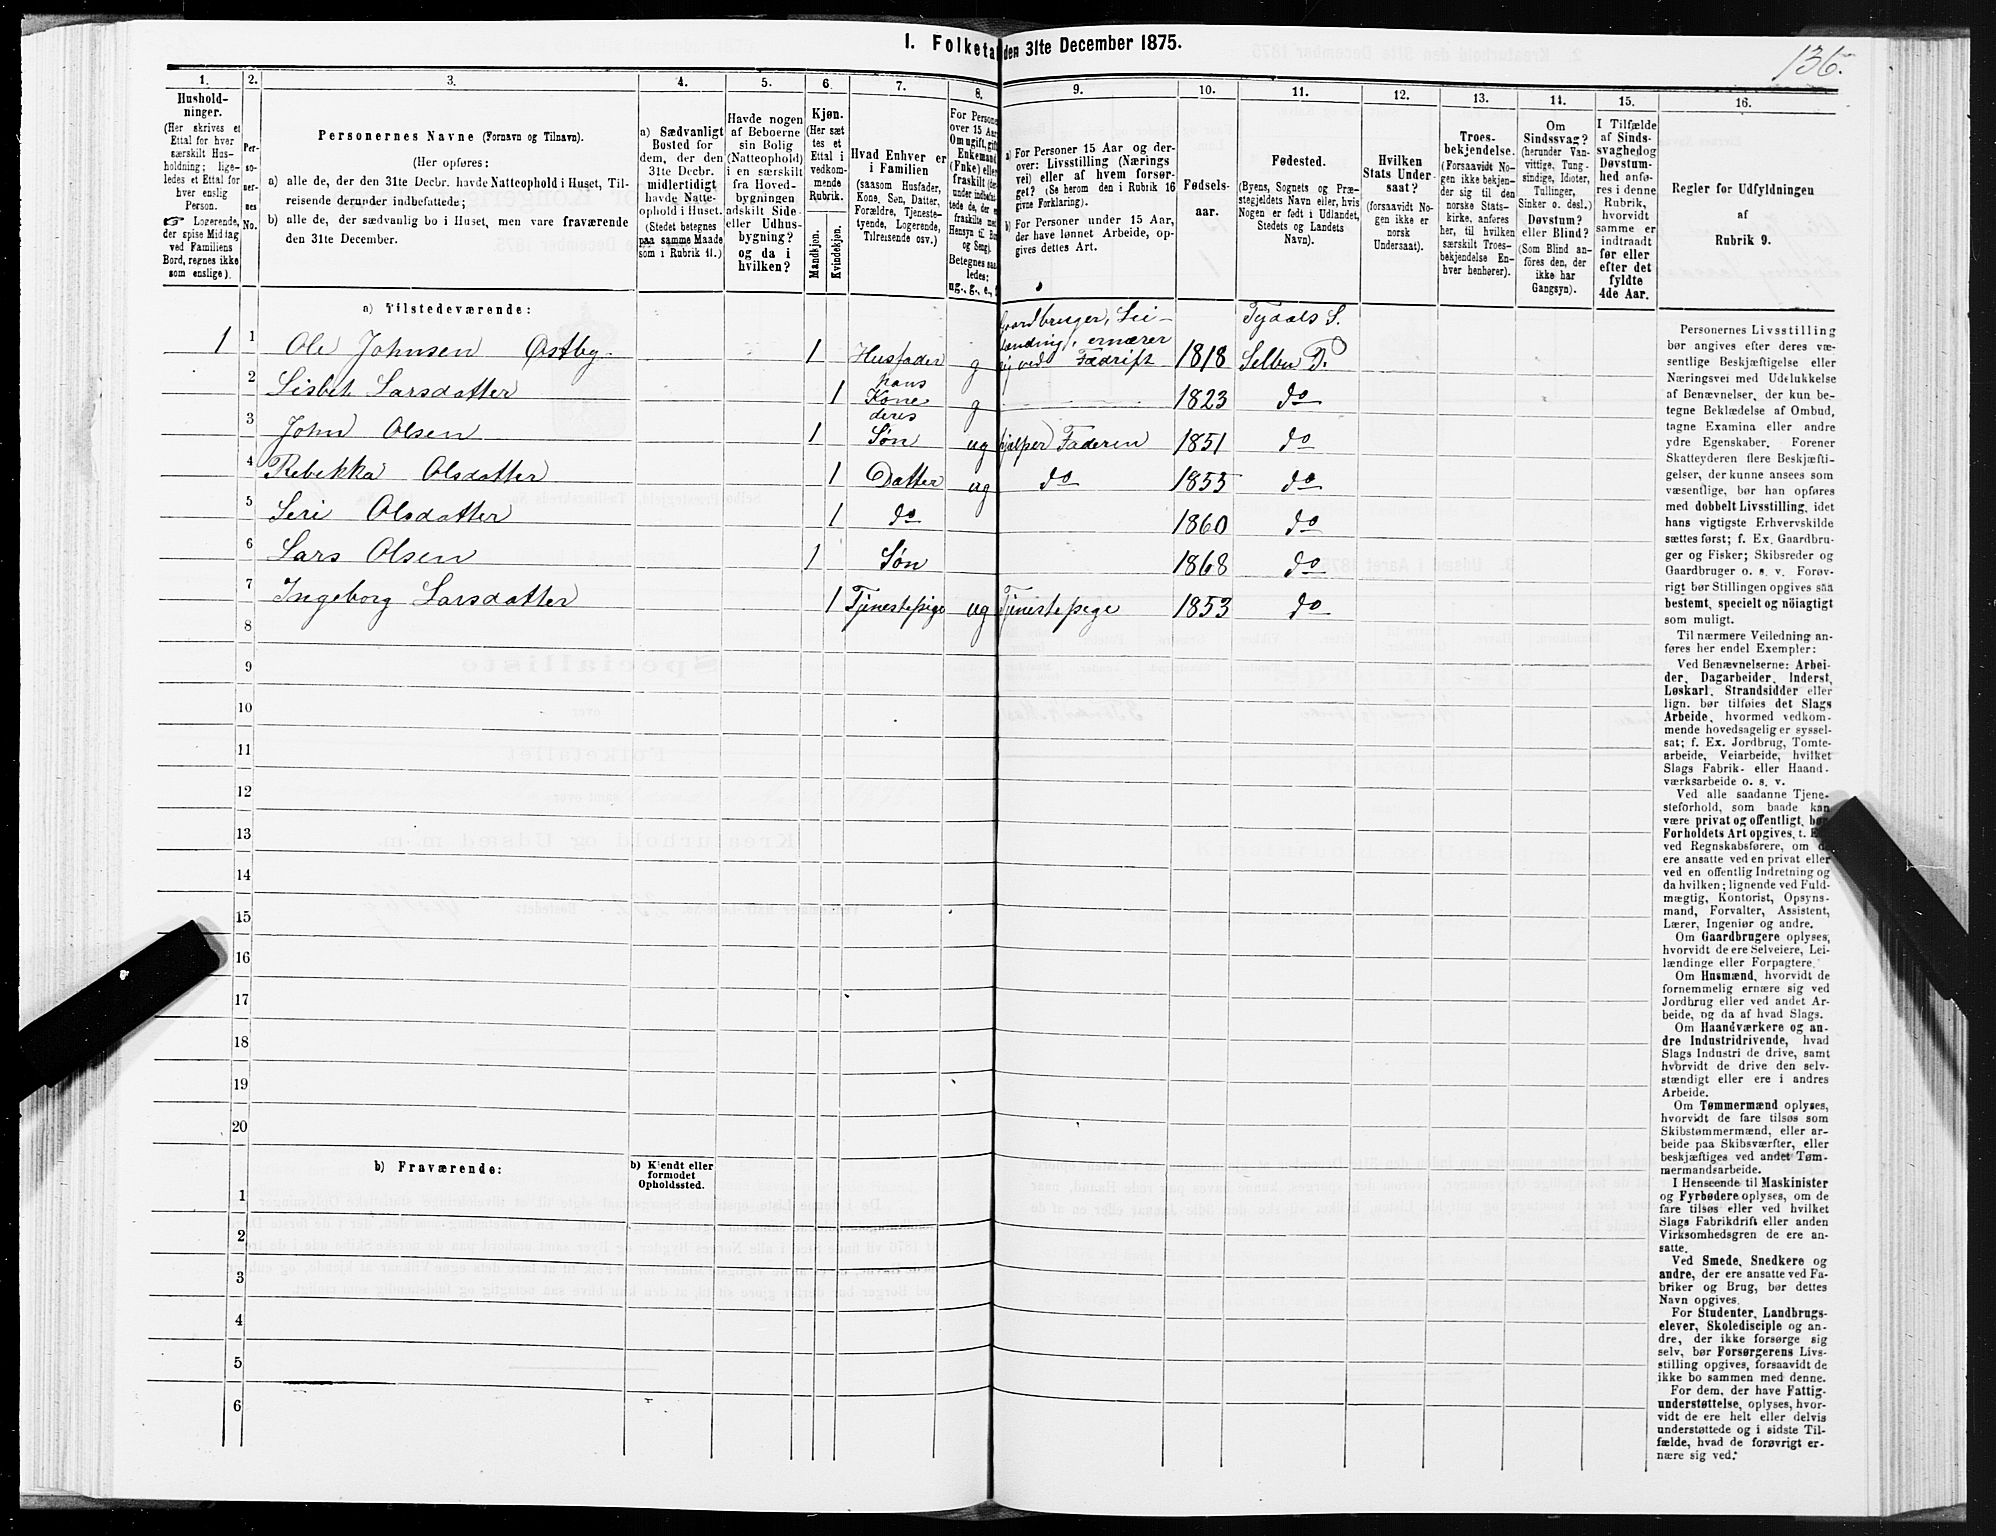 I. Folketal den 31te December 1875.
136.
1.
2.
3.
4.
5.
6.
7.
8.
9.
10.
11.
12.
13.
14.
15.
16.
Hushold-
ninger.
(Her skrives et
Ettal for hver
særskilt Hus-
holdning; lige-
ledes et Ettal for
hver enslig
Person.
☞ Logerende,
der spise Middag
ved Familiens
Bord, regnes ikke
som enslige).
Per-
so-
ner-
nes
No.
Personernes Navne (Fornavn og Tilnavn).
(Her opføres:
a) alle de, der den 31te Decbr. havde Natteophold i Huset, Til-
reisende derunder indbefattede;
b) alle de, der sædvanlig bo i Huset, men vare fraværende
den 31te December.
a) Sædvanligt
Bosted for
dem, der den
31te Decbr.
midlertidigt
havde Natte-
ophold i Huset.
(Stedet betegnes
paa samme Maade
som i Rubrik 11.)
Havde nogen
af Beboerne
sin Bolig
(Natteophold)
i en særskilt
fra Hoved-
bygningen
adskilt Side-
eller Udhus-
bygning?
og da i
hvilken?
Kjøn.
(Her sæt
tes et
Ettal i
vedkom-
mende
Rubrik.
Mandkjøn.
Kvindekjøn.
Hvad Enhver er
i Familien
(saasom Husfader,
Kone, Søn, Datter,
Forældre, Tjeneste-
tyende, Logerende,
Tilreisende osv.)
For Persone
over 15 Aar
Om ugift, gift
Enkemand
(Fnke) eller
fraskilt (de
under indbefat-
tede de, der e
fraskilte med
Hensyn til Bo
og Seng).
Betegnes saa
ledes:
ug., g., e., f
a) For Personer 15 Aar og der-
over: Livsstilling (Nærings
vei) eller af hvem forsør-
get? (Se herom den i Rubrik 16
givne Forklaring).
b) For Personer under 15 Aar,
der have lønnet Arbeide, op-
gives dettes Art.
Fødsels-
aar.
Fødested.
(Byens, Sognets og Præ-
stegjeldets Navn eller, hvis
Nogen er født i Udlandet,
Stedets og Landets
Navn).
Hvilken
Stats Under-
saat?
(forsaavidt No-
gen ikke er
norsk
Undersaat).
Troes-
bekjendelse.
(Forsaavidt No-
gen ikke bekjen-
der sig til den
norske Stats-
kirke, anføres
her, til hvilken
særskilt Troes-
bekjendelse En-
hver henhører).
Om
Sindssvag?
(herunder Van-
vittige, Tung-
sindige, Idioter,
Tullinger,
Sinker o. desl.)
Døvstum?
eller Blind?
(Som Blind an-
føres den, der
ikke har
Gangsyn).
I Tilfælde
af Sinds-
svaghed og
Døvstum-
hed anfø-
res i denne
Rubrik,
hvorvidt
samme er
indtraadt
før eller
efter det
fyldte
4de Aar.
Regler for Udfyldningen
af
Rubrik 9.
a) Tilstedeværende:
1 1 Ole Johnsen Østby 1 Husfader g Gaardbruger, Lei-
lænding, ernærer
sig ved Fædrift 1818 Tydals S.
Selbu P.
2 Lisbet Larsdatter 1 hans
Kone g 1823 do
3 John Olsen 1 deres
Søn ug hjælper Faderen 1851 do
4 Rebekka Olsdatter 1 Datter ug do 1855 do
5 Seri Olsdatter 1 do 1860 do
6 Lars Olsen 1 Søn 1868 do
7 Ingeborg Larsdatter 1 Tjenestepige ug Tjenestepige 1853 do
8
9
10
11
12
13
14
15
16
17
18
19
20
b) Fraværende:
b) Kjendt eller
formodet
Opholdssted.
1
2
3
4
5
6
Personernes Livsstilling
bør angives efter deres væ-
sentlige Beskjæftigelse eller
Næringsvei med Udelukkelse
af Benævnelser, der kun be-
tegne Beklædelse af Ombud,
tagne Examina eller andre
ydre Egenskaber. Forener
Skatteyderen flere Beskjæfti-
gelser, der kunne ansees som
væsentlige, bør han opføres
med dobbelt Livsstilling, idet
hans vigtigste Erhvervskilde
sættes først; f. Ex. Gaardbru-
ger og Fisker; Skibsreder og
Gaardbruger o. s. v. Forøv-
rigt bør Stillingen opgives saa
bestemt, specielt og nöiagtigt
som muligt.
Til nærmere Veiledning an-
føres her endel Exempler:
Ved Benævnelserne: Arbei-
der, Dagarbeider, Inderst,
Løskarl, Strandsidder eller
lign. bør tilføies det Slags
Arbeide, hvormed vedkom-
mende hovedsagelig er syssel-
sat; f. Ex. Jordbrug, Tomte-
arbeide, Veiarbeide, hvilket
Slags Fabrik- eller Haand-
værksarbeide o. s. v.
Ved alle saadanne Tjene-
steforhold, som baade kan
være privat og offentligt, bør
Forholdets Art opgives, t. E
ved Regnskabsførere, om de
ere ansatte ved en privat eller
ved en offentlig Indretning og
da hvilken; lignende ved Fuld-
mægtig, Kontorist, Opsyns-
mand, Forvalter, Assistent,
Lærer, Ingeniør og andre.
Om Gaardbrugere oplyses,
hvorvidt de ere Selveiere, Lei-
lændinge eller Forpagtere.
Om Husmænd, hvorvidt de
fornemmelig ernære sig ved
Jordbrug eller ved andet Ar-
beide, og da af hvad Slags.
Om Haandværkere og an-
dre Industridrivende, hvad
Slags Industri de drive, samt
hvorvidt de drive den selv-
stændigt eller ere i andres
Arbeide.
Om Tømmermænd oplyses,
hvorvidt de fare tilsøs som
Skibstømmermænd, eller ar-
beide paa Skibsværfter, eller
beskjæftiges ved andet Tøm-
mermandsarbeide.
I Henseende til Maskinister
og Fyrbødere oplyses, om de
fare tilsøs eller ved hvilket
Slags Fabrikdrift eller anden
Virksomhedsgren de ere an-
satte.
Ved Smede, Snedkere og
andre, der ere ansatte ved Fa-
briker og Brug, bør dettes
Navn opgives.
For Studenter, Landbrugs-
elever, Skoledisciple og an-
dre, der ikke forsørge sig
selv, bør Forsørgerens Livs-
stilling opgives, forsaavidt de
ikke bo sammen med denne.
For dem, der have Fattig-
understøttelse, oplyses, hvor-
vidt de ere helt eller delvis
understøttede og i sidste Til-
fælde, hvad de forøvrigt er-
nære sig ved.